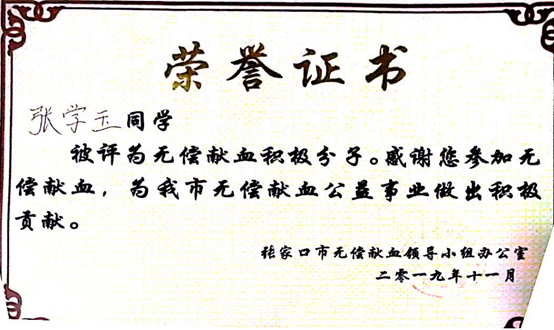 荣誉证书
张学玉同学
被评为无偿献血积极分子。感谢您参加无
偿献血，为我市无偿献血公益事业做出积极
贡献。
张家口市无偿献血领导小组办公室
二零一九年十一月